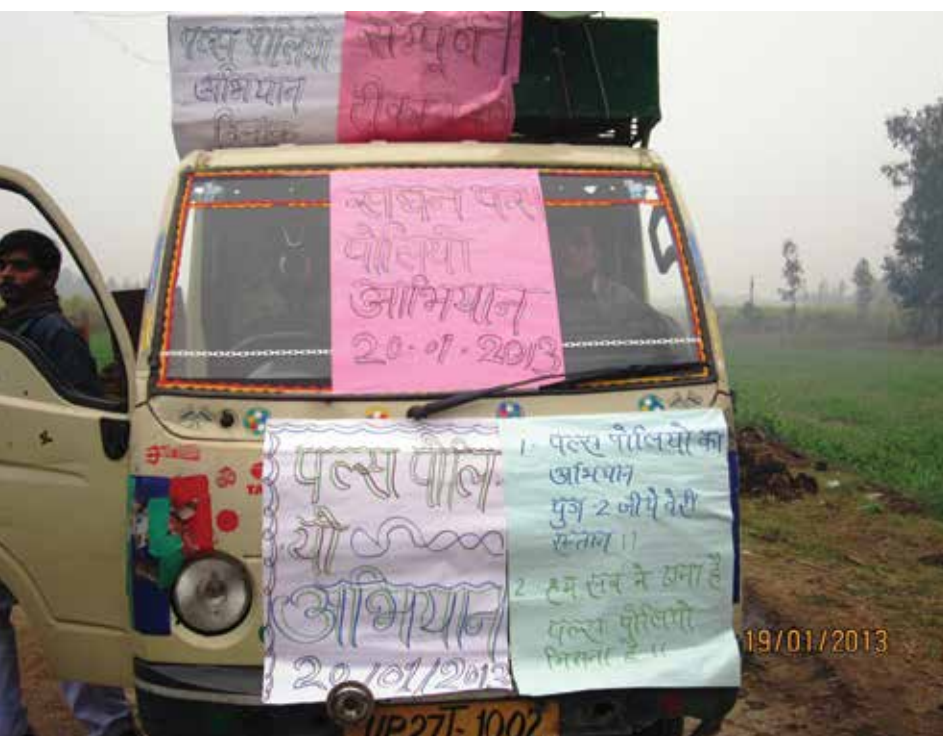 पल्स पोलियो
अभियान
दिनांक
सम्पूर्ण
सघन पल्स
पोलियो
अभियान
20-01-2013
पल्स पोलि
यो
अभियान
20/01/2013
1. पल्स पोलियो का
अभियान
पुज 2 जीये तेरी
सन्तान !!
2 हम सब ने ठाना है
पल्स पुलियो
मिटाना है !!
UP27T-1002
19/01/2013